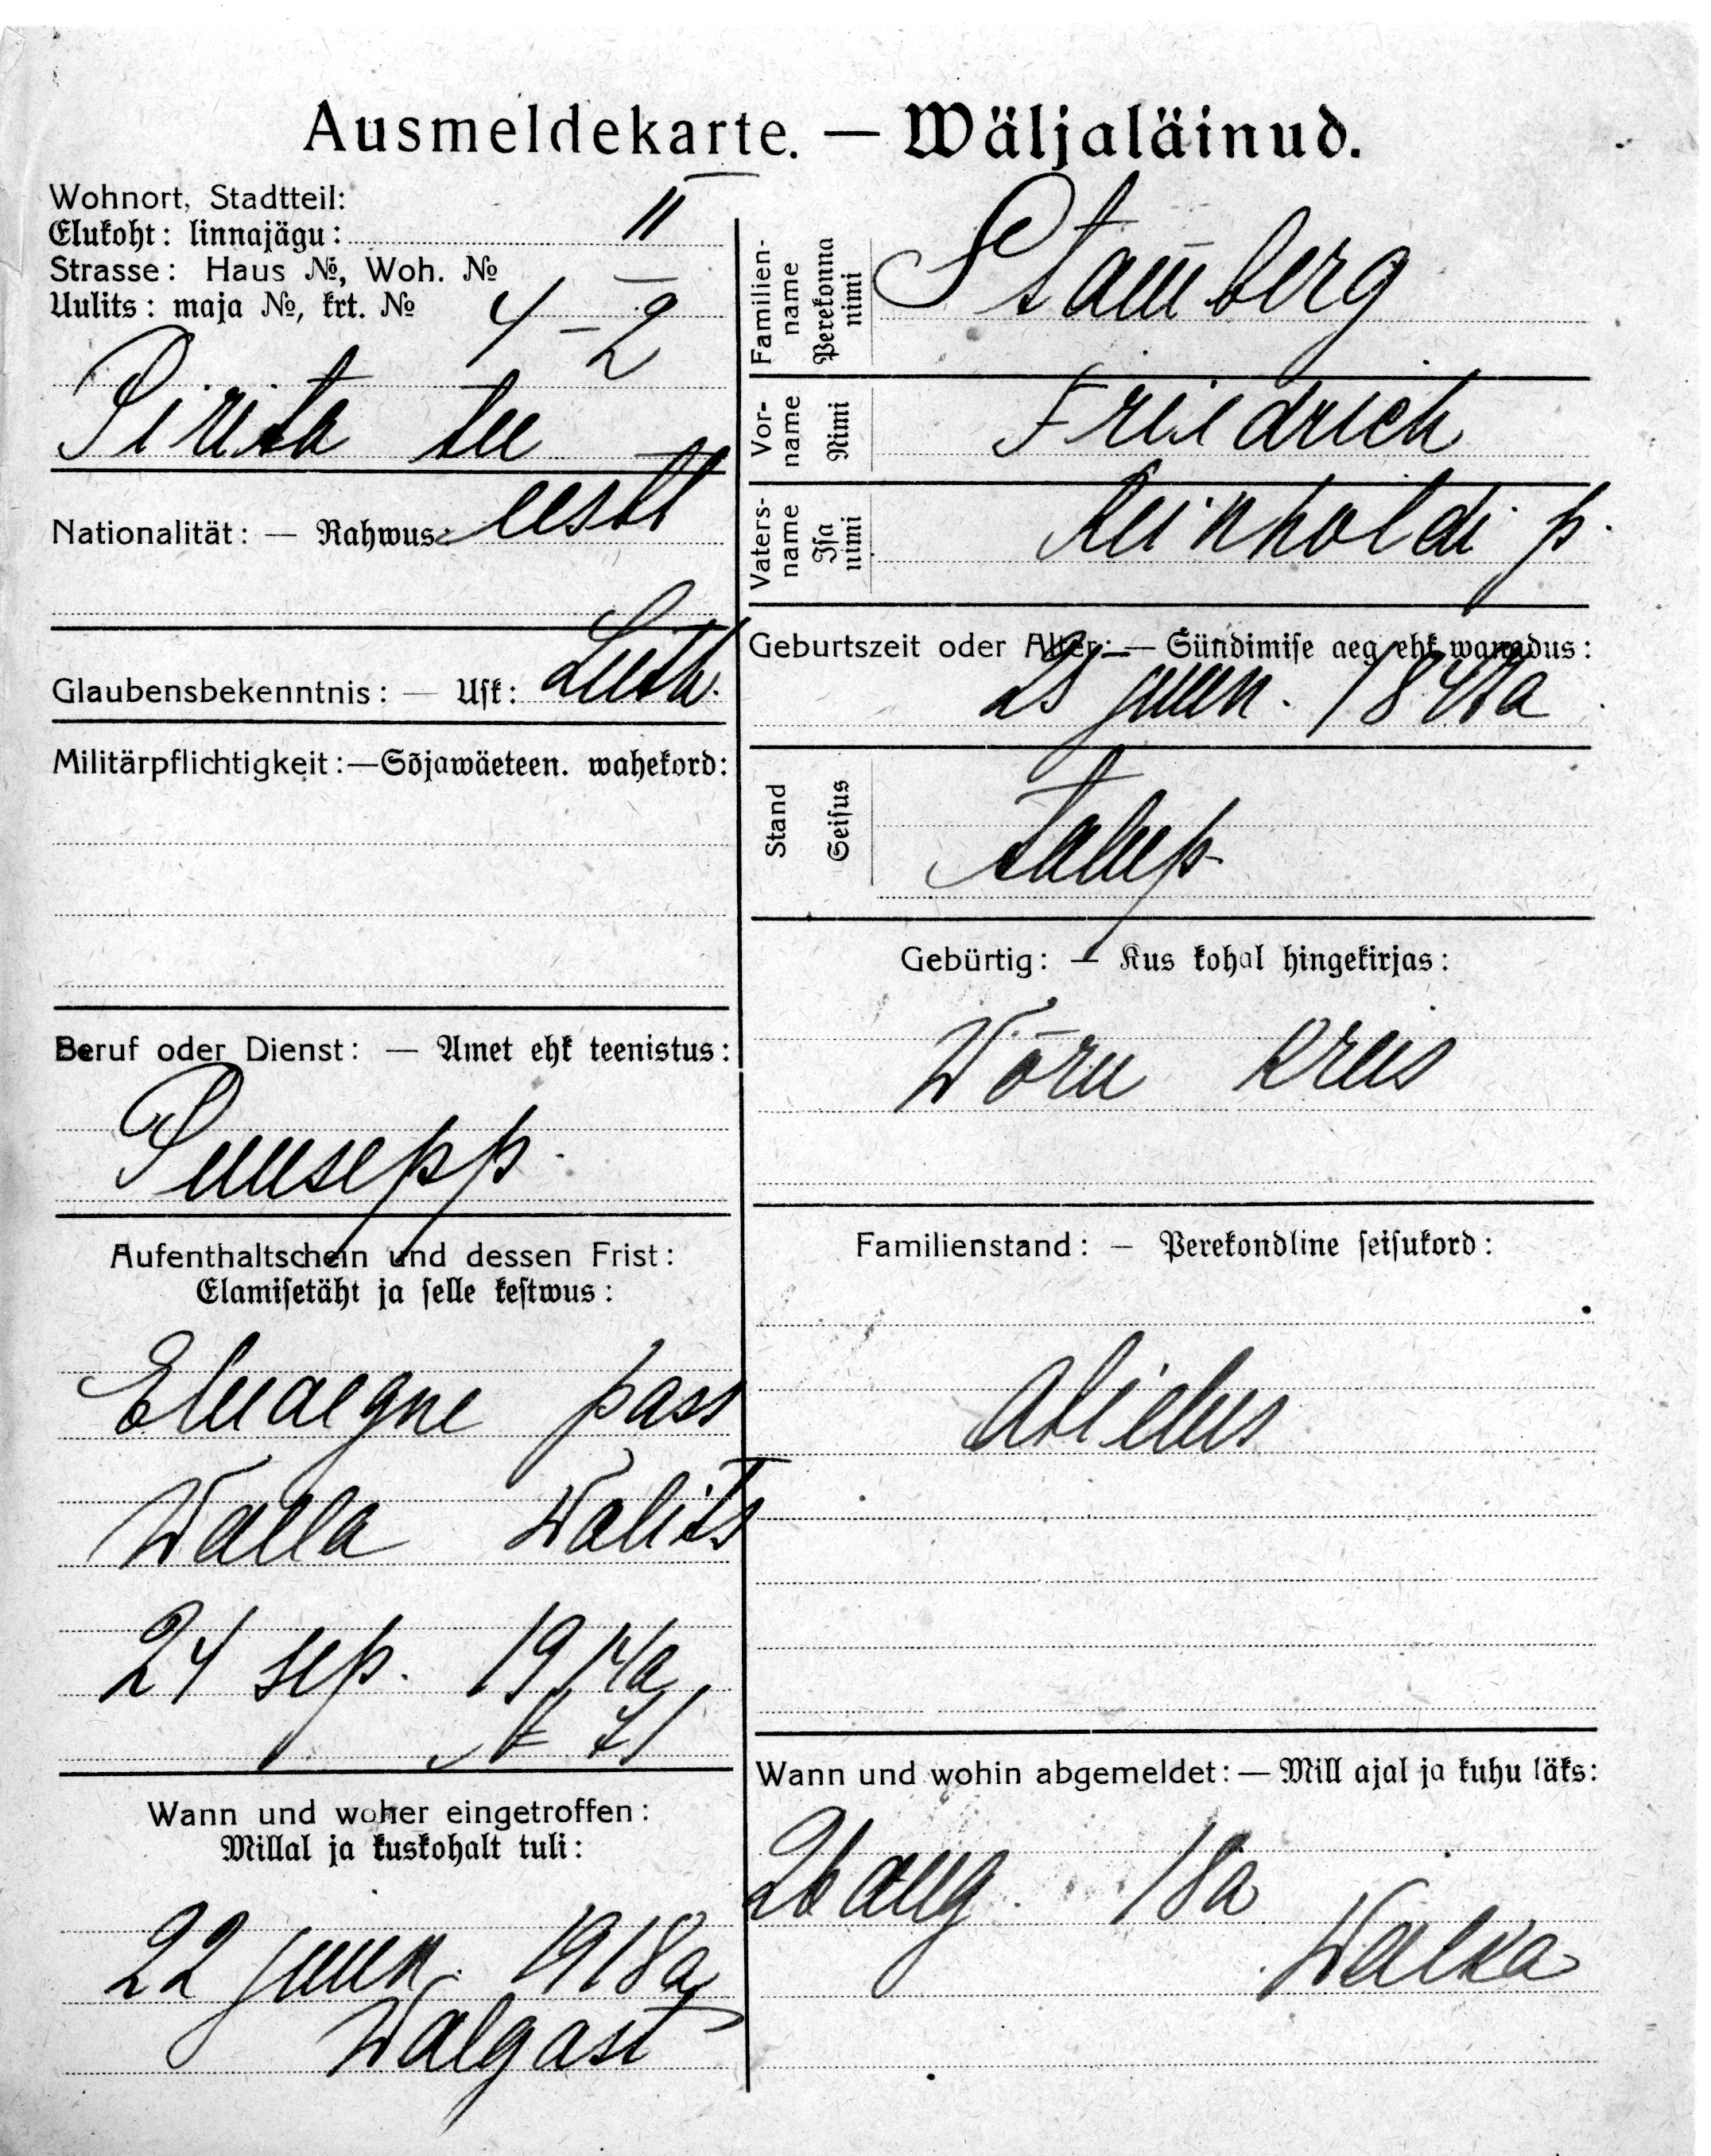 Ausmeldekarte. — Wäljaläinud.
Wohnort, Stadtteil:
Elukoht: linnajägu: II
Strasse: Haus №, Woh. №
Uulits: maja №, krt. № 4–2
Pirita tee
Nationalität: — Rahwus: eesti
Glaubensbekenntnis: — Usk: Luth.
Militärpflichtigkeit: — Sõjawäeteen. wahekord:
Beruf oder Dienst: — Amet ehk teenistus:
Puusepp.
Aufenthaltschein und dessen Frist:
Elamisetäht ja selle kestwus:
Eluaegne pass
Walla Walits
24 sep. 1914a
№ 71
Wann und woher eingetroffen:
Millal ja kuskohalt tuli:
22 juun. 1918a
Walgast
Familien-
name
Perekonna
nimi
Stam̄berg
Vor-
name
Nimi
Friedrich
Vaters-
name
Isa
nimi
Reinholdi p.
Geburtszeit oder Alter: — Sündimise aeg ehk wanadus:
juun.
Stand
Seisus
talup.
Gebürtig: — Kus kohal hingekirjas:
Wõru kreis
Familienstand: — Perekondline seisukord:
abielus
Wann und wohin abgemeldet: — Mill ajal ja kuhu läks:
26 aug. 18a
Walka